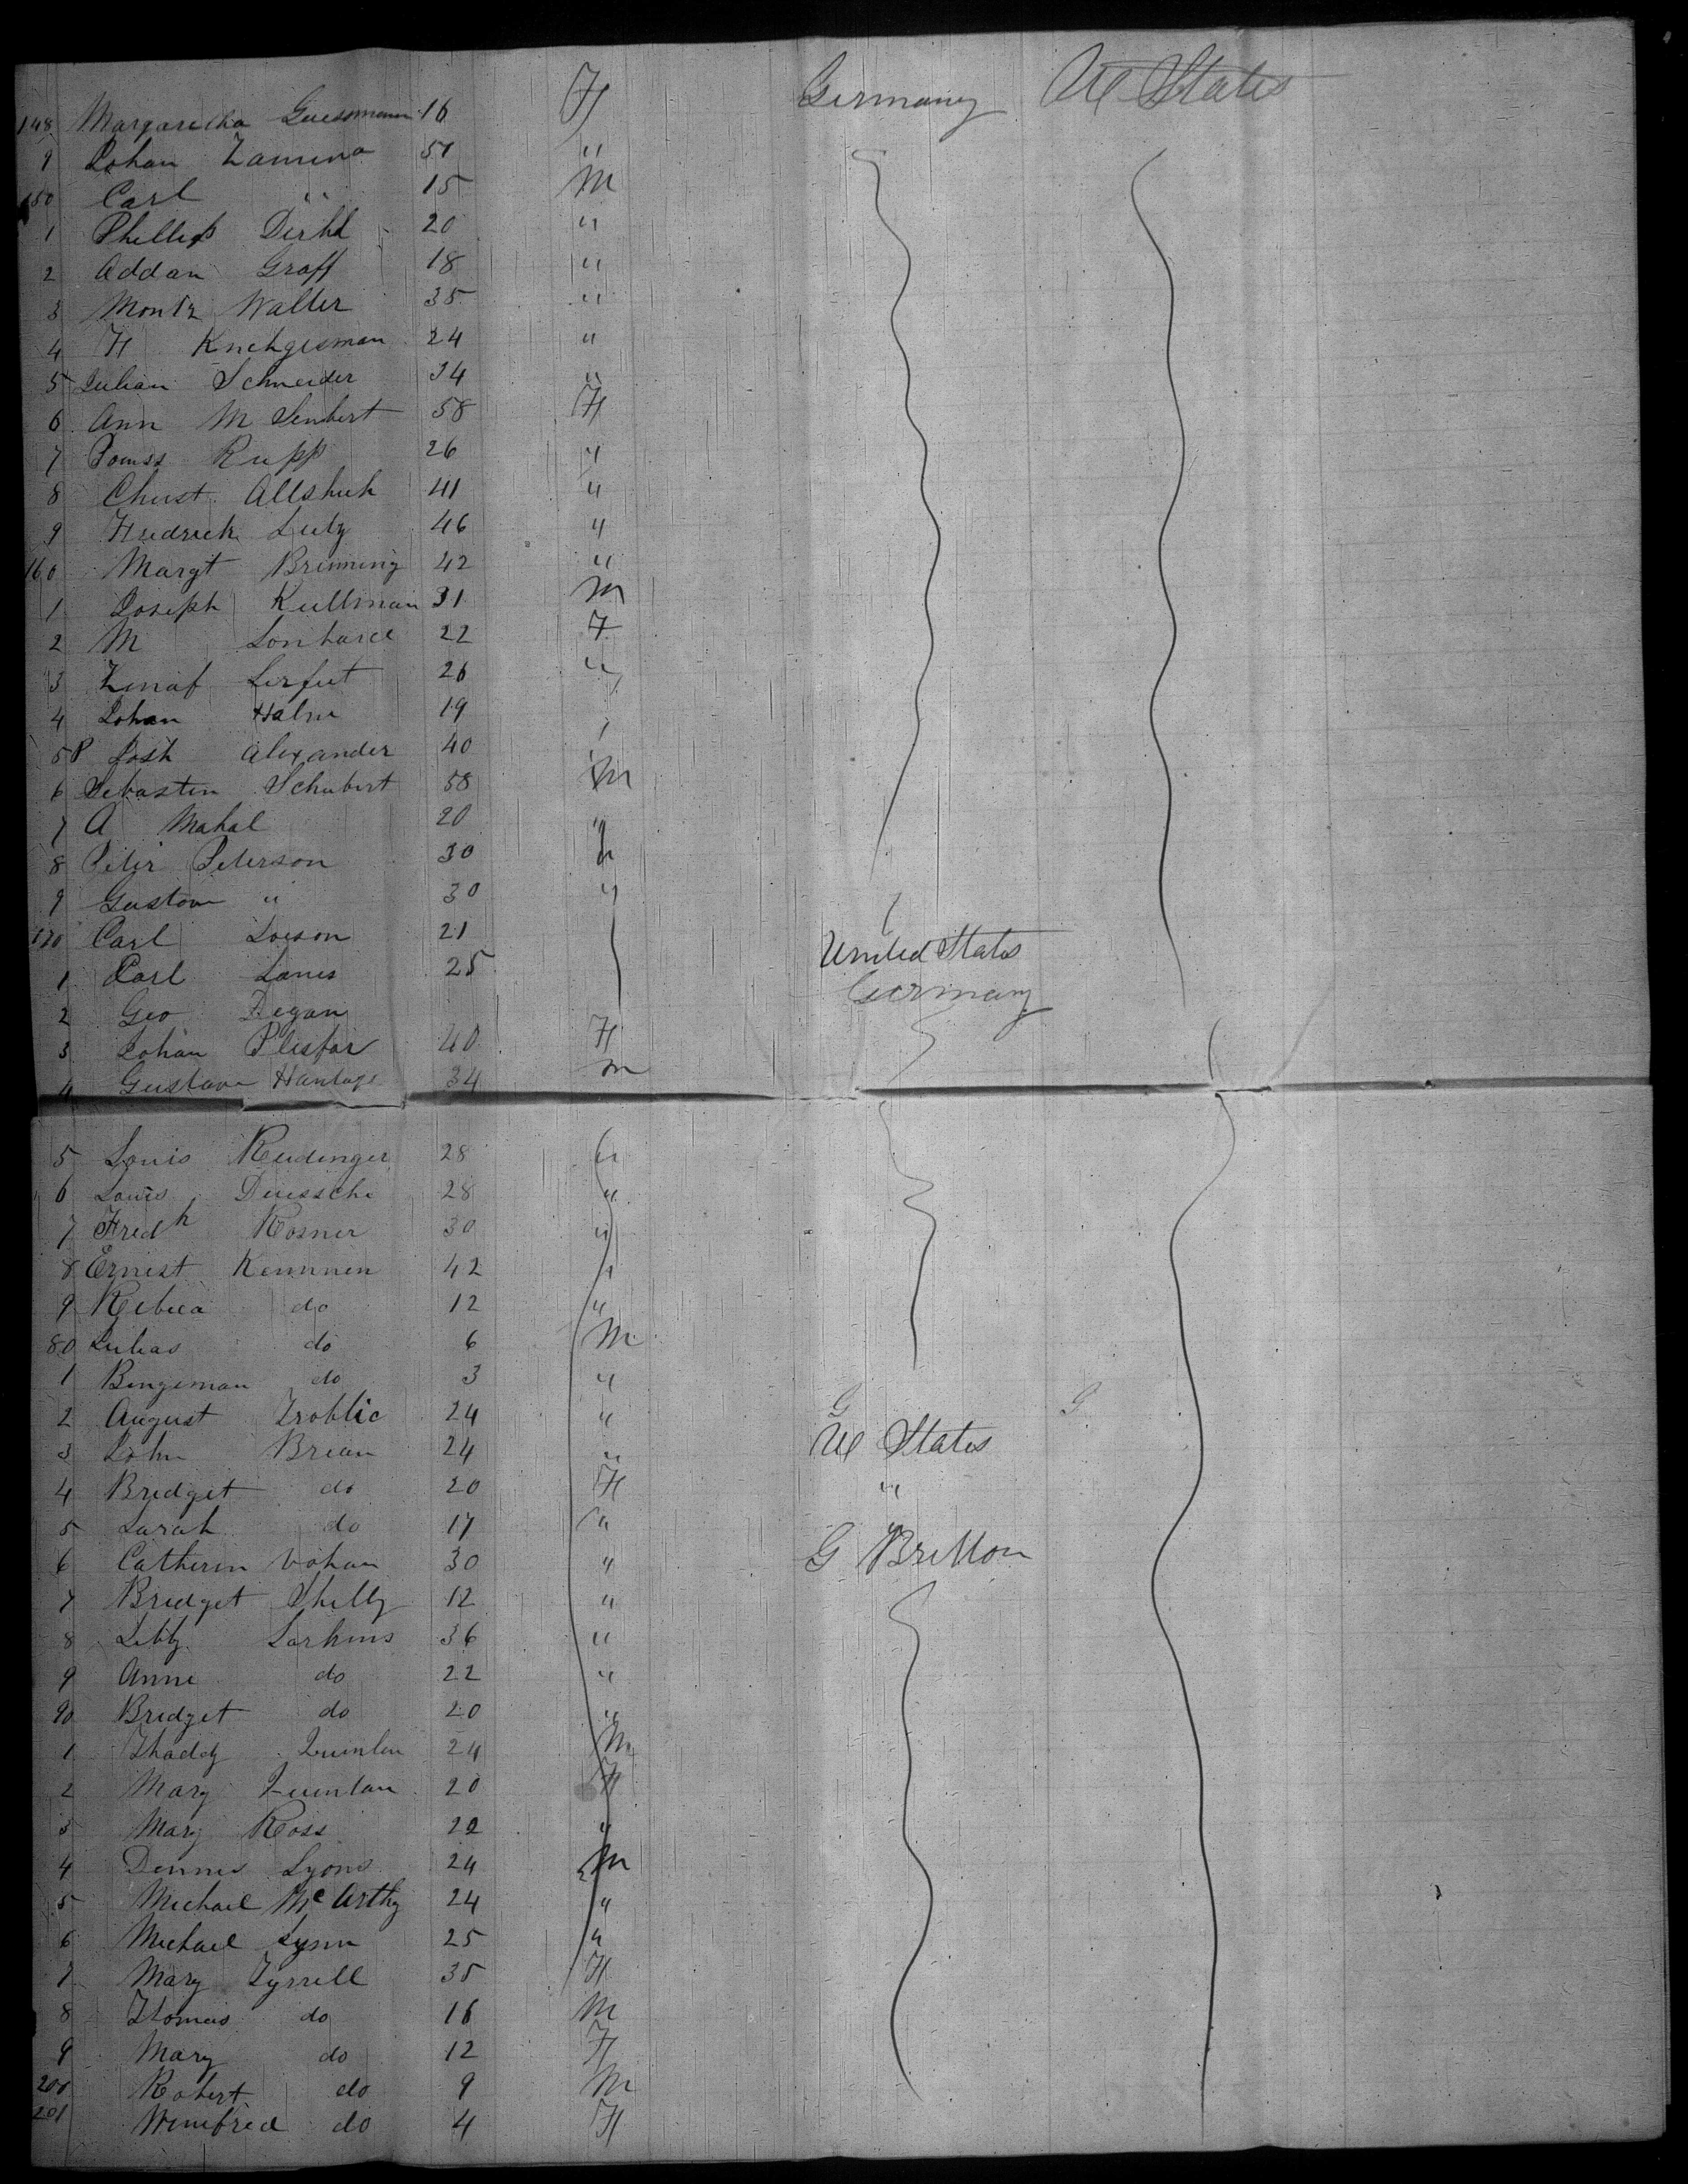 148 Margaretha Guessmann 16 F Germany U States
9 Johan Zamina 51 "
150 Carl " 15 M
1 Phillip Diehl 20 "
2 Addan Graff 18 "
3 Montz Walter 35 "
4 H 24 "
5 Julian Schneider 34 "
6 Ann M Senbert 58 F
7 Rupp 26 "
8 Christ 41 "
9 Fredrick Lutz 46 "
160 Margt Brinning 42 "
1 Joseph Kullman 31 M
2 M 22 F
3 26 "
4 Johan Halm 19
5 P Josh Alexander 40
6 Sebastin Schubert 58 M
7 A Mahal 20 "
8 Peter Peterson 30 "
9 Gustave " 30 "
170 Carl 21 United States
1 Carl 25 Germany
2 Geo Degan
3 Johan 40 F
4 Gustave 34 M
5 Louis Reidinger 28 "
6 Louis 28 "
7 Fredk Rosner 30 "
8 Ernest 42 "
9 Rebeca do 12 "
80 Julias do 6 M
1 Bengeman do 3 "
2 August 24 " G G
3 John Brian 24 " U States
4 Bridget do 20 F "
5 Sarah do 17 " "
6 Catherin 30 " G Britton
7 Bridget Shelly 12 "
8 Larkins 36 "
9 Anne do 22 "
90 Bridget do 20 "
1 Thaddy Quinlan 24 M
2 Mary Quinlan 20 F
3 Mary Ross 22 "
4 Dennis Lyons 24 M
5 Michael McArthy 24 "
6 Michael 25 "
7 Mary Tyrrell 35 F
8 Thomas do 16 M
9 Mary do 12 F
200 Robert do 9 M
201 Winifred do 4 F